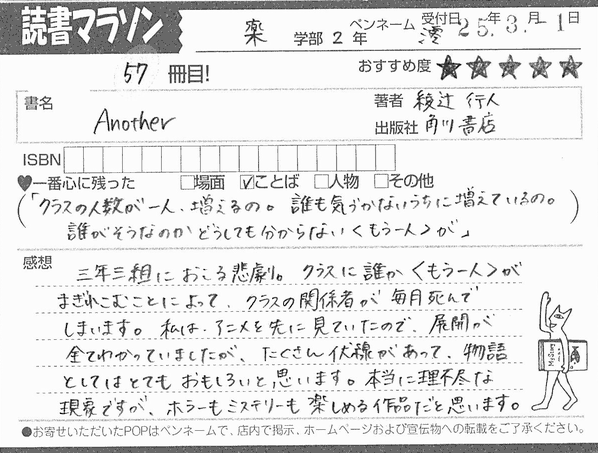 読書マラソン
薬 学部 2 年 ペンネーム 澪 受付日 25年 3月 1日
57 冊目! おすすめ度 ★★★★★
書名 Another
著者 綾辻 行人
出版社 角川書店
ISBN
♥一番心に残った □場面 ☑ことば □人物 □その他
(「クラスの人数が一人、増えるの。誰も気づかないうちに増えているの。
誰がそうなのかどうしても分からない〈もう一人〉が」)
感想
三年三組におこる悲劇。クラスに誰か〈もう一人〉が
まぎれこむことによって、クラスの関係者が毎月死んで
しまいます。私は、アニメを先に見ていたので、展開が
全てわかっていましたが、たくさん伏線があって、物語
としてはとてもおもしろいと思います。本当に理不尽な
現象ですが、ホラーもミステリーも楽しめる作品だと思います。
●お寄せいただいたPOPはペンネームで、店内で掲示、ホームページおよび宣伝物への転載をご了承ください。